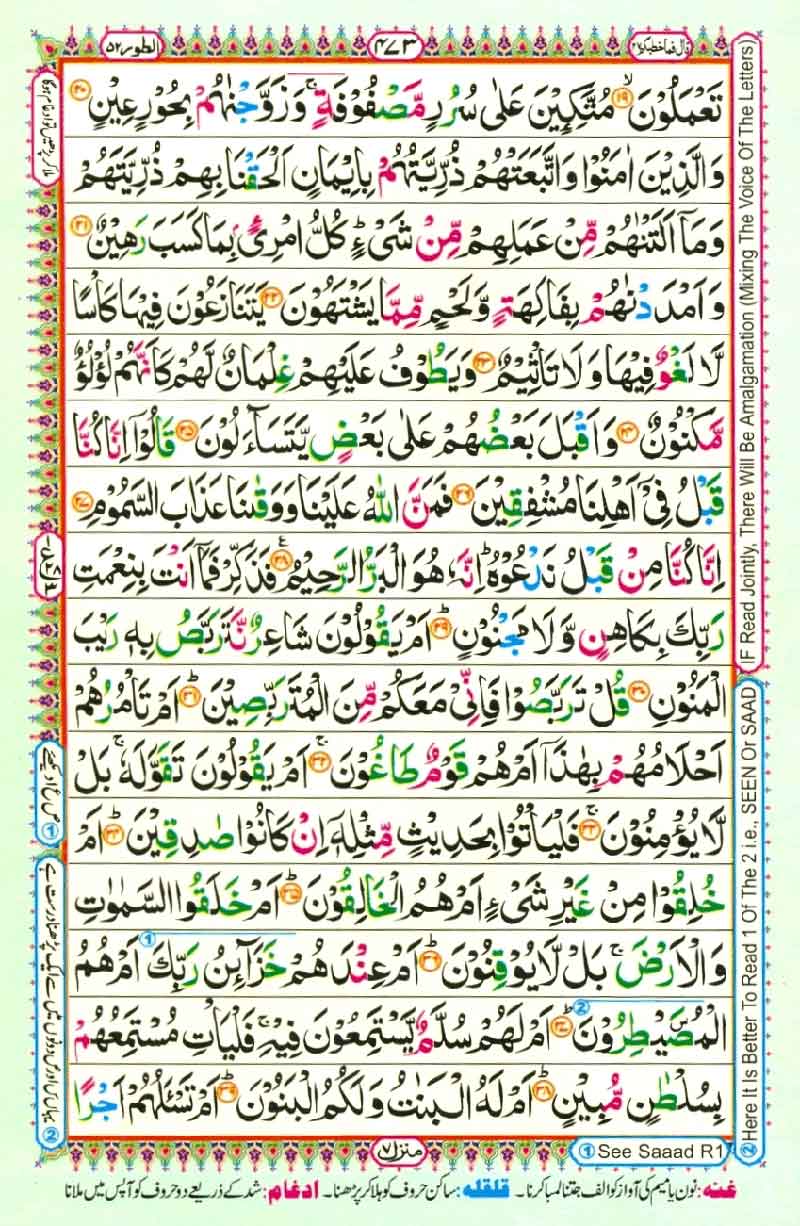 قال فما خطبكم ٢٧
٤٧٣
الطور ٥٢
تَعْمَلُوْنَ ۙ﴿۱۹﴾ مُتَّكِـِٕيْنَ عَلٰى سُرُرٍ مَّصْفُوْفَةٍ ۚ وَزَوَّجْنٰهُمْ بِحُوْرٍ عِيْنٍ ﴿۲۰﴾
وَالَّذِيْنَ اٰمَنُوْا وَاتَّبَعَتْهُمْ ذُرِّيَّتُهُمْ بِاِيْمَانٍ اَلْحَقْنَا بِهِمْ ذُرِّيَّتَهُمْ
وَمَاۤ اَلَتْنٰهُمْ مِّنْ عَمَلِهِمْ مِّنْ شَيْءٍ ؕ كُلُّ امْرِئٍۢ بِمَا كَسَبَ رَهِيْنٌ ﴿۲۱﴾
وَاَمْدَدْنٰهُمْ بِفَاكِهَةٍ وَّلَحْمٍ مِّمَّا يَشْتَهُوْنَ ﴿۲۲﴾ يَتَنَازَعُوْنَ فِيْهَا كَاْسًا
لَّا لَغْوٌ فِيْهَا وَلَا تَاْثِيْمٌ ﴿۲۳﴾ وَيَطُوْفُ عَلَيْهِمْ غِلْمَانٌ لَّهُمْ كَاَنَّهُمْ لُؤْلُؤٌ
مَّكْنُوْنٌ ﴿۲۴﴾ وَاَقْبَلَ بَعْضُهُمْ عَلٰى بَعْضٍ يَّتَسَآءَلُوْنَ ﴿۲۵﴾ قَالُوْۤا اِنَّا كُنَّا
قَبْلُ فِيْۤ اَهْلِنَا مُشْفِقِيْنَ ﴿۲۶﴾ فَمَنَّ اللّٰهُ عَلَيْنَا وَوَقٰىنَا عَذَابَ السَّمُوْمِ ﴿۲۷﴾
اِنَّا كُنَّا مِنْ قَبْلُ نَدْعُوْهُ ؕ اِنَّهٗ هُوَ الْبَرُّ الرَّحِيْمُ ﴿۲۸﴾ۧ فَذَكِّرْ فَمَاۤ اَنْتَ بِنِعْمَتِ
رَبِّكَ بِكَاهِنٍ وَّلَا مَجْنُوْنٍ ؕ﴿۲۹﴾ اَمْ يَقُوْلُوْنَ شَاعِرٌ نَّتَرَبَّصُ بِهٖ رَيْبَ
الْمَنُوْنِ ﴿۳۰﴾ قُلْ تَرَبَّصُوْا فَاِنِّيْ مَعَكُمْ مِّنَ الْمُتَرَبِّصِيْنَ ؕ﴿۳۱﴾ اَمْ تَاْمُرُهُمْ
اَحْلَامُهُمْ بِهٰذَاۤ اَمْ هُمْ قَوْمٌ طَاغُوْنَ ۚ﴿۳۲﴾ اَمْ يَقُوْلُوْنَ تَقَوَّلَهٗ ۚ بَلْ
لَّا يُؤْمِنُوْنَ ۚ﴿۳۳﴾ فَلْيَاْتُوْا بِحَدِيْثٍ مِّثْلِهٖۤ اِنْ كَانُوْا صٰدِقِيْنَ ؕ﴿۳۴﴾ اَمْ
خُلِقُوْا مِنْ غَيْرِ شَيْءٍ اَمْ هُمُ الْخَالِقُوْنَ ؕ﴿۳۵﴾ اَمْ خَلَقُوا السَّمٰوٰتِ
وَالْاَرْضَ ۚ بَلْ لَّا يُوْقِنُوْنَ ؕ﴿۳۶﴾ اَمْ عِنْدَهُمْ خَزَآئِنُ رَبِّكَ اَمْ هُمُ
الْمُصَۜيْطِرُوْنَ ؕ﴿۳۷﴾ اَمْ لَهُمْ سُلَّمٌ يَّسْتَمِعُوْنَ فِيْهِ ۚ فَلْيَاْتِ مُسْتَمِعُهُمْ
بِسُلْطٰنٍ مُّبِيْنٍ ؕ﴿۳۸﴾ اَمْ لَهُ الْبَنٰتُ وَلَكُمُ الْبَنُوْنَ ؕ﴿۳۹﴾ اَمْ تَسْـَٔلُهُمْ اَجْرًا
منزل ۷
① See Saaad R1
IF Read Jointly, There Will Be Amalgamation (Mixing The Voice Of The Letters)
② Here It Is Better To Read 1 Of The 2 i.e., SEEN Or SAAD
ملا کر پڑھیں تو ادغام ہوگا
② یہاں س اور ص دونوں میں سے ایک پڑھنا درست ہے
غنہ: نون یا میم کی آواز کو الف جتنا لمبا کرنا۔ قلقلہ: ساکن حروف کو ہلا کر پڑھنا۔ ادغام: شد کے ذریعے دو حروف کو آپس میں ملانا